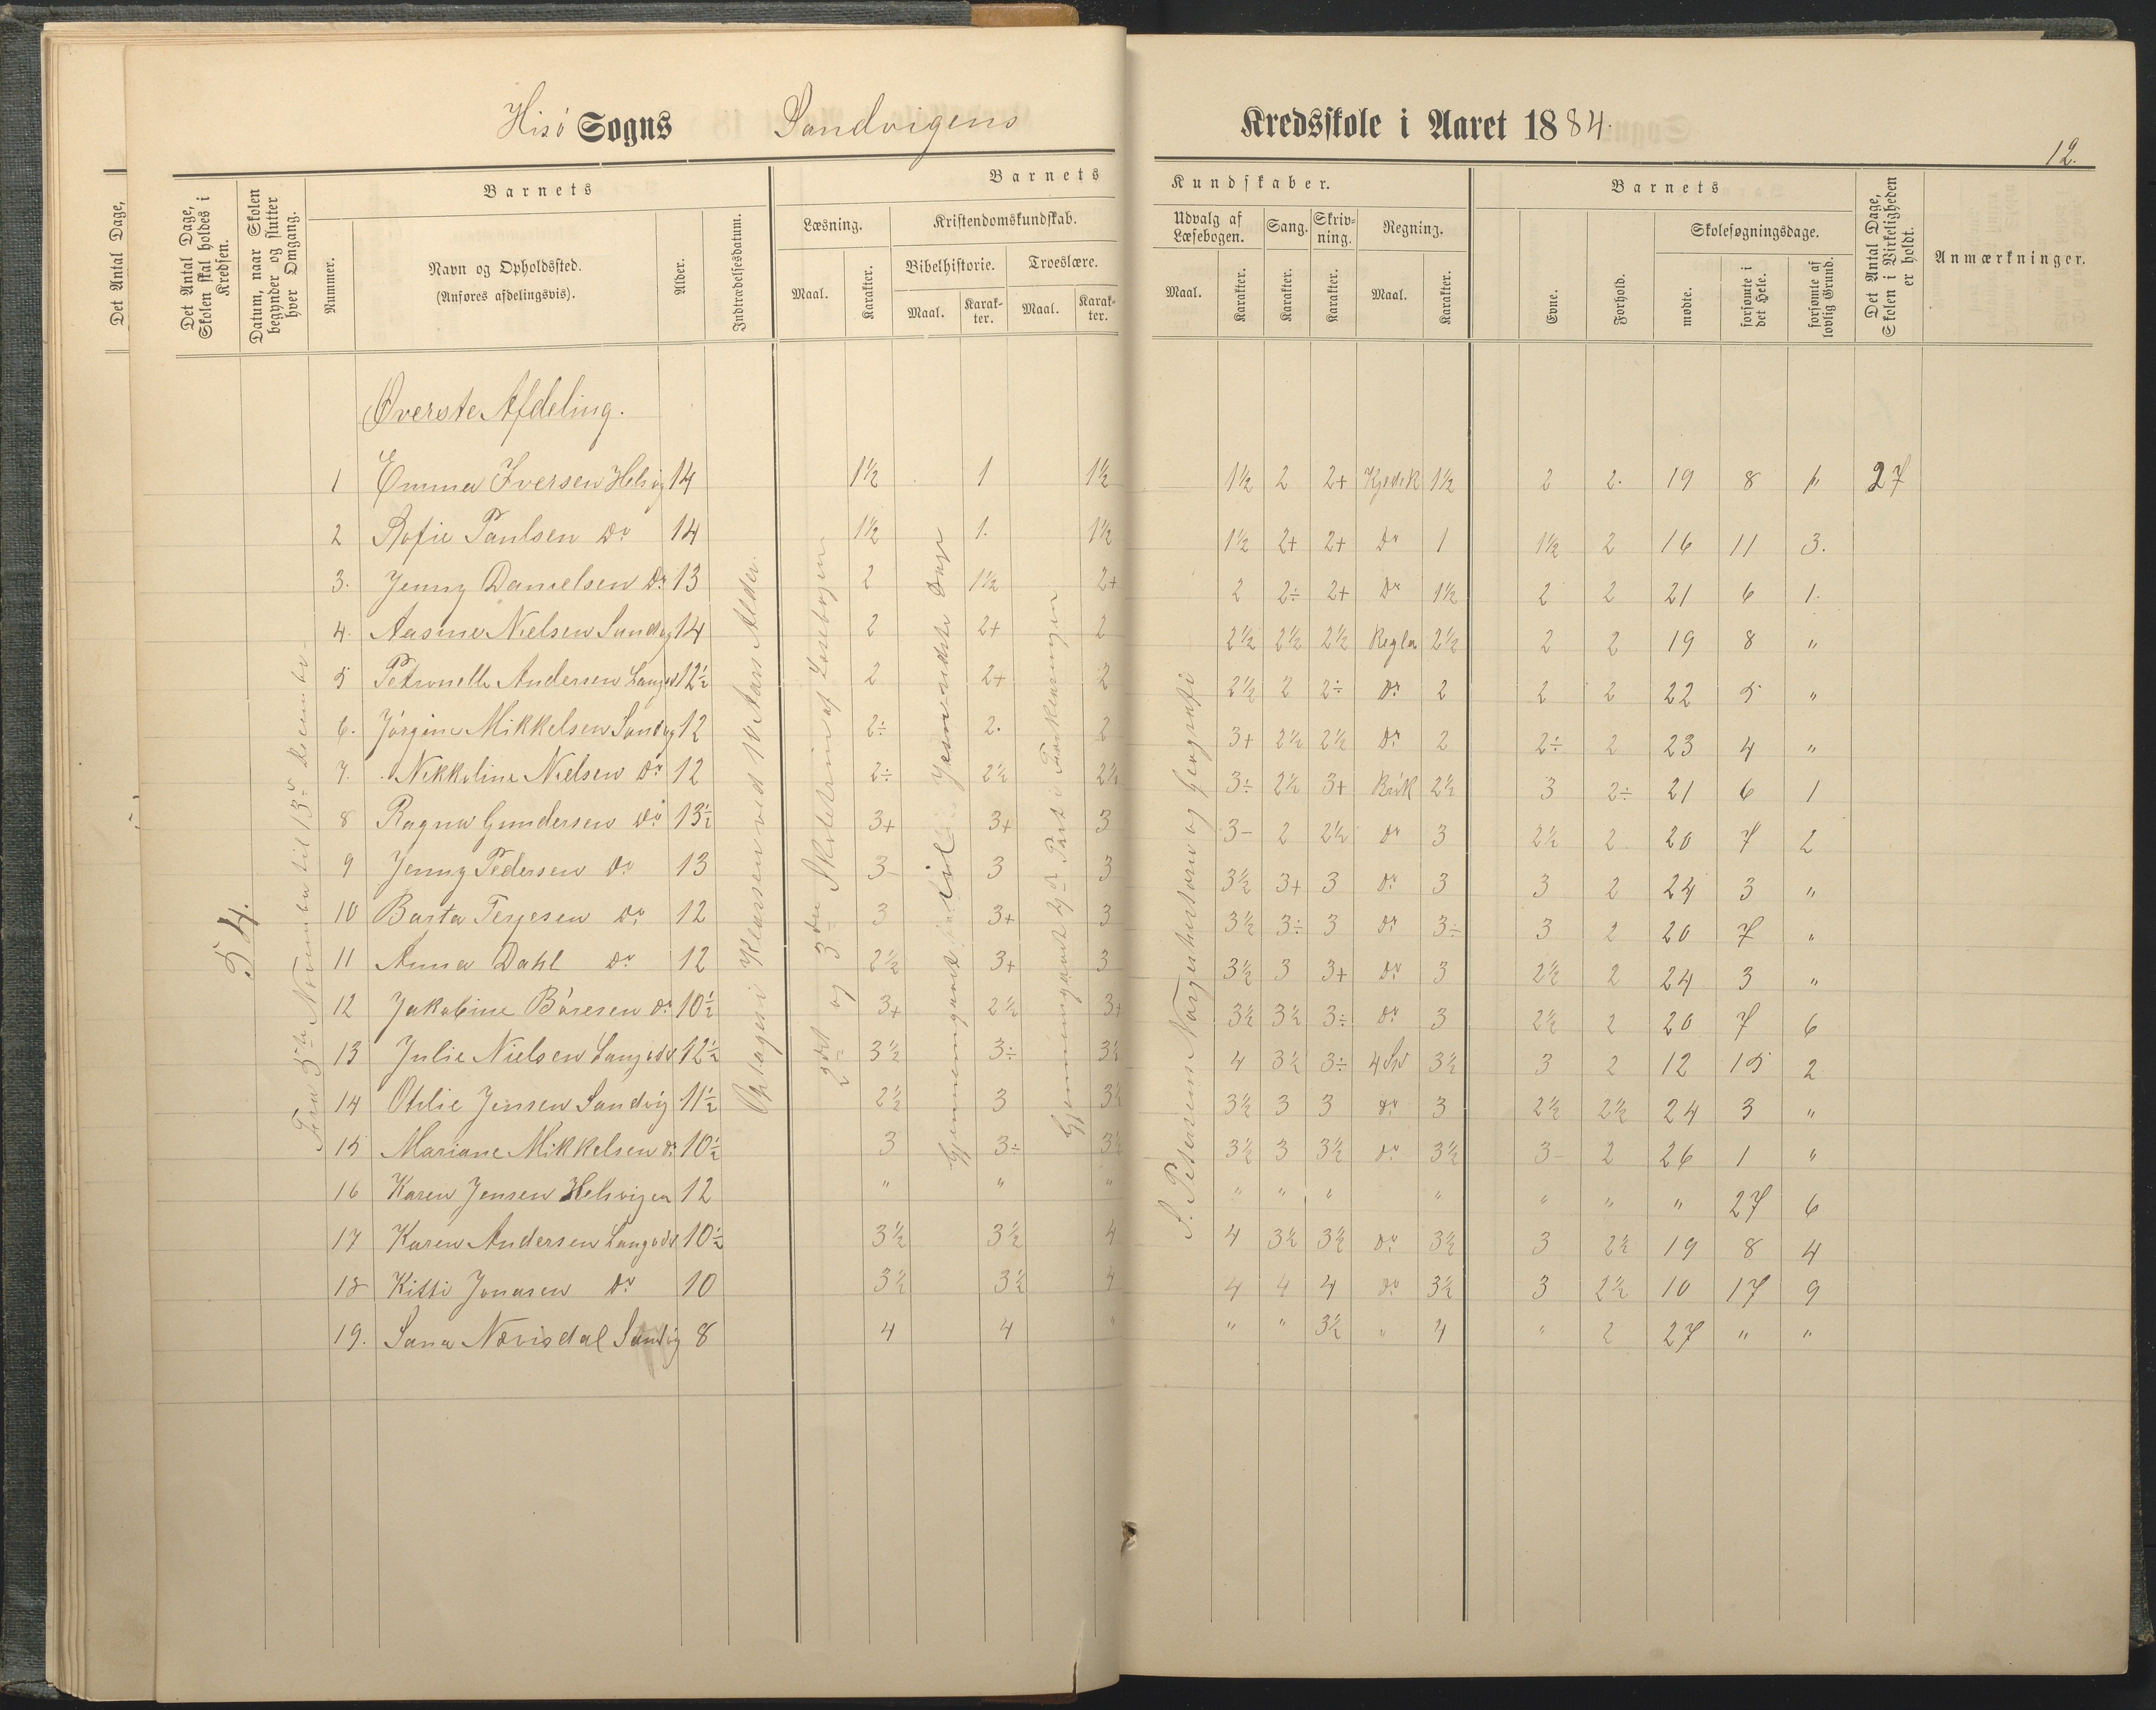 Hisö Sogns Sandvigens Kredsskole i Aaret 1884.
12.
Det Antal Dage,
Det Antal Dage, Skolen skal holdes i Kredsen.
Datum, naar Skolen begynder og slutter hver Omgang.
Barnets
Nummer.
Navn og Opholdssted.
(Anføres afdelingsvis).
Alder.
Indtrædelsesdatum.
Barnets Kundskaber.
Læsning.
Maal.
Karakter.
Kristendomskundskab.
Bibelhistorie.
Maal.
Karakter.
Troeslære.
Maal.
Karakter.
Udvalg af Læsebogen.
Maal.
Karakter.
Sang.
Karakter.
Skrivning.
Karakter.
Regning.
Maal.
Karakter.
Barnets
Evne.
Forhold.
Skolesøgningsdage.
mødte.
forsømte i det Hele.
forsømte af lovlig Grund.
Det Antal Dage, Skolen i Virkeligheden er holdt.
Anmærkninger.
Øverste Afdeling.
54.
Fra 5te November til 13de December
Optages i Klassen ved 10 Aars Alder.
2det og 3die Skoletrin af Læsebogen
Gjennemgaaet
Gjennemgaaet 2den Part i Forklaringen
S. Petersens Norgeshistorie og Geografi
1 Emma Iversen Helvig 14 1½ 1 1½ 1½ 2 2+ Kjedr. 1½ 2 2. 19 8 27
2 Sofie Paulsen Do 14 1½ 1. 1½ 1½ 2+ 2+ Do 1 1½ 2 16 11 3.
3. Jenny Danielsen Do 13 2 1½ 2+ 2 2÷ 2+ Do 1½ 2 2 21 6 1.
4. Aasine Nielsen Sandvig 14 2 2+ 2 2½ 2½ 2½ Regla 2½ 2 2 19 8 "
5 Petronelle Andersen Langs 12½ 2 2+ 2 2½ 2 2÷ Do 2 2 2 22 5 "
6. Jörgine Mikkelsen Sandvg 12 2÷ 2. 2 3+ 2½ 2½ Do 2 2÷ 2 23 4 "
7. Nikkoline Nielsen Do 12 2÷ 2½ 2½ 3÷ 2½ 3+ Brök 2½ 3 2÷ 21 6 1
8 Ragna Gundersen Do 13½ 3+ 3+ 3 3- 2 2½ Do 3 2½ 2 20 7 2
9 Jenny Pedersen Do 13 3- 3 3 3½ 3+ 3 Do 3 3 2 24 3 "
10 Barta Terjesen Do 12 3 3+ 3 3½ 3÷ 3 Do 3÷ 3 2 20 7 "
11 Anna Dahl Do 12 2½ 3+ 3 3½ 3 3+ Do 3 2½ 2 24 3 "
12 Jakobine Böresen Do 10½ 3+ 2½ 3+ 3½ 3½ 3÷ Do 3 2½ 2 20 7 6
13 Julie Nielsen Langsds 12½ 3½ 3÷ 3½ 4 3½ 3÷ 3½ 3 2 12 15 2
14 Othlie Jensen Sandvig 11½ 2½ 3 3½ 3½ 3 3 Do 3 2½ 2½ 24 3 "
15 Mariane Mikkelsen Do 10½ 3 3÷ 3½ 3½ 3 3½ Do 3½ 3- 2 26 1 "
16 Karen Jensen Helvigen 12 " " " " " " " " " " 27 6
17 Karen Andersen Langsds 10½ 3½ 3½ 4 4 3½ 3½ Do 3½ 3 2½ 19 8 4
18 Kitti Jonasen Do 10 3½ 3½ 4 4 4 4 Do 3½ 3 2½ 10 17 9
19. Sana Nævisdal Sandvig 8 4 4 " " " 3½ " 4 " 2 27 " "